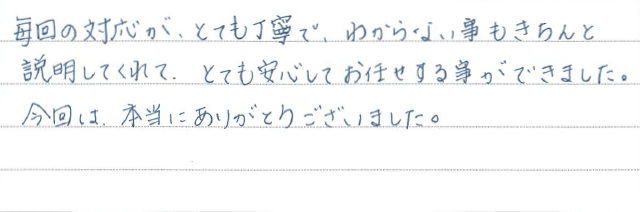 毎回の対応が、とても丁寧で、わからない事もきちんと
説明してくれて、とても安心してお任せする事ができました。
今回は、本当にありがとうございました。